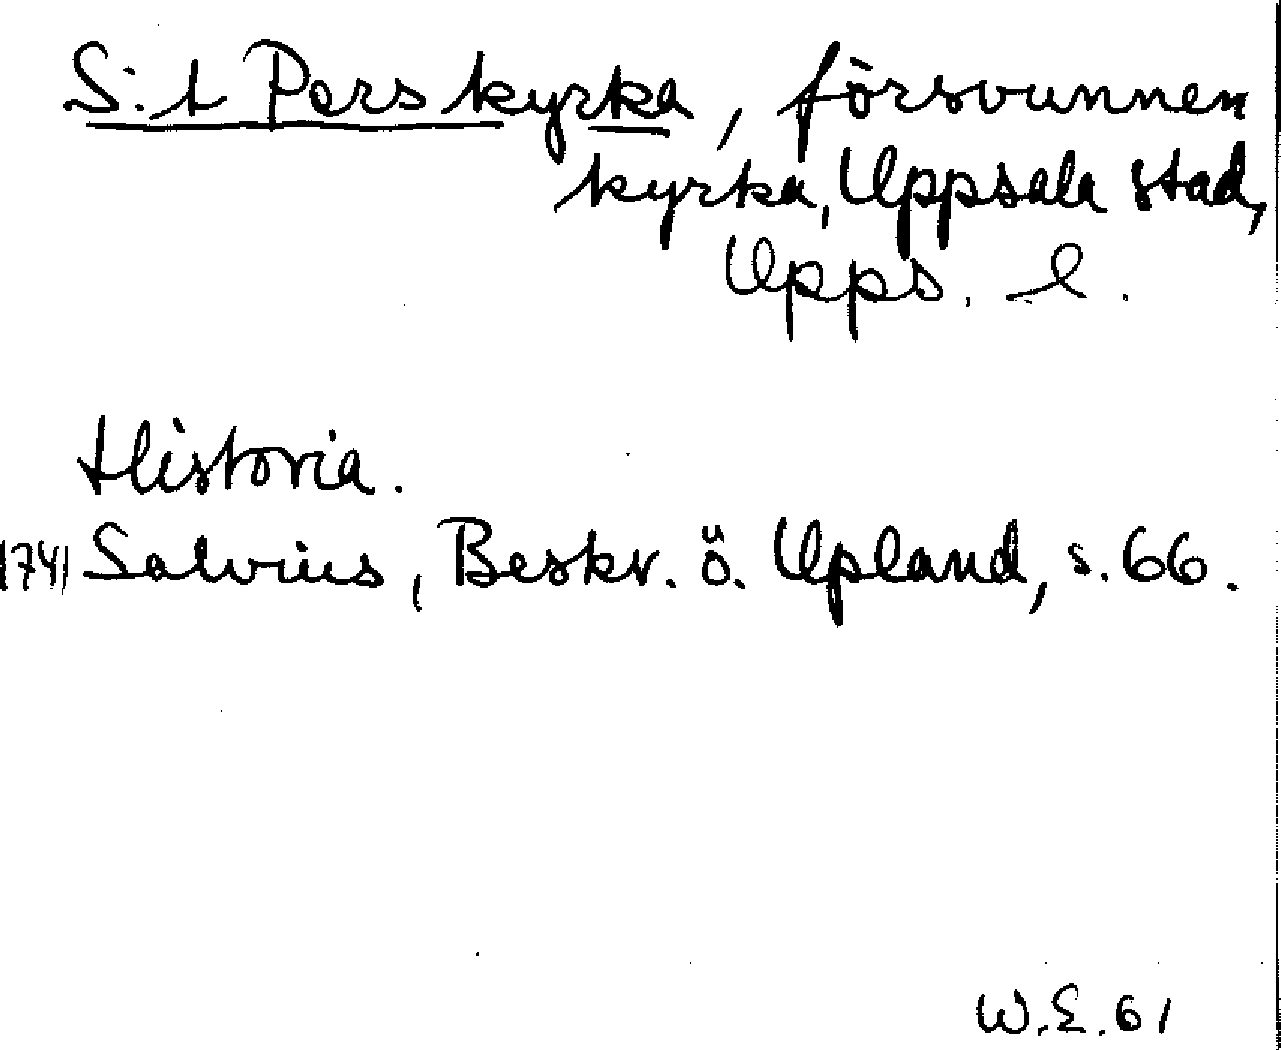 S:t Pers kyrka, försvunnen
kyrka, Uppsala stad,
Upps. l.
Historia.
1741 Salvius, Beskr. ö. Upland, s. 66.
W.E. 61